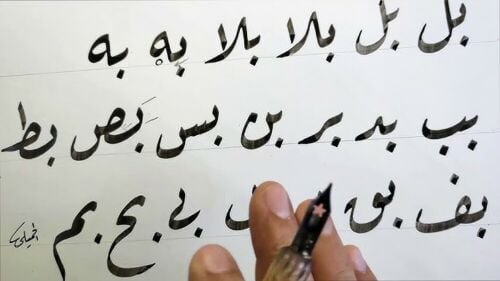 بل بل بلا بلا به به
بب بد بر بن بس بَص بط
بف بق بي بح بم